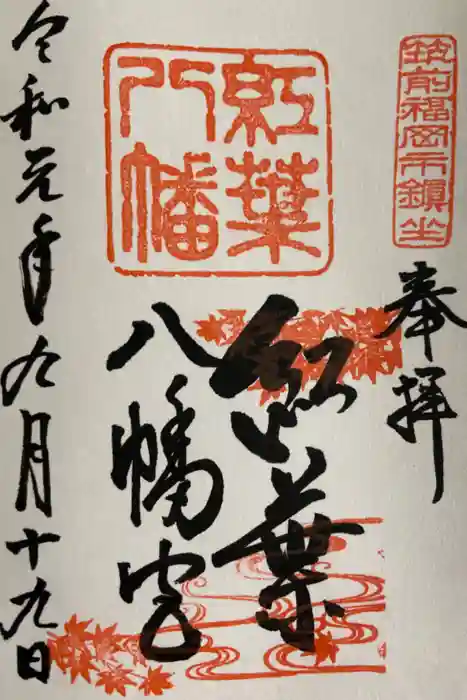 筑前福岡市鎮坐
奉拝
紅葉
八幡
紅葉
八幡宮
令和元年九月十九日